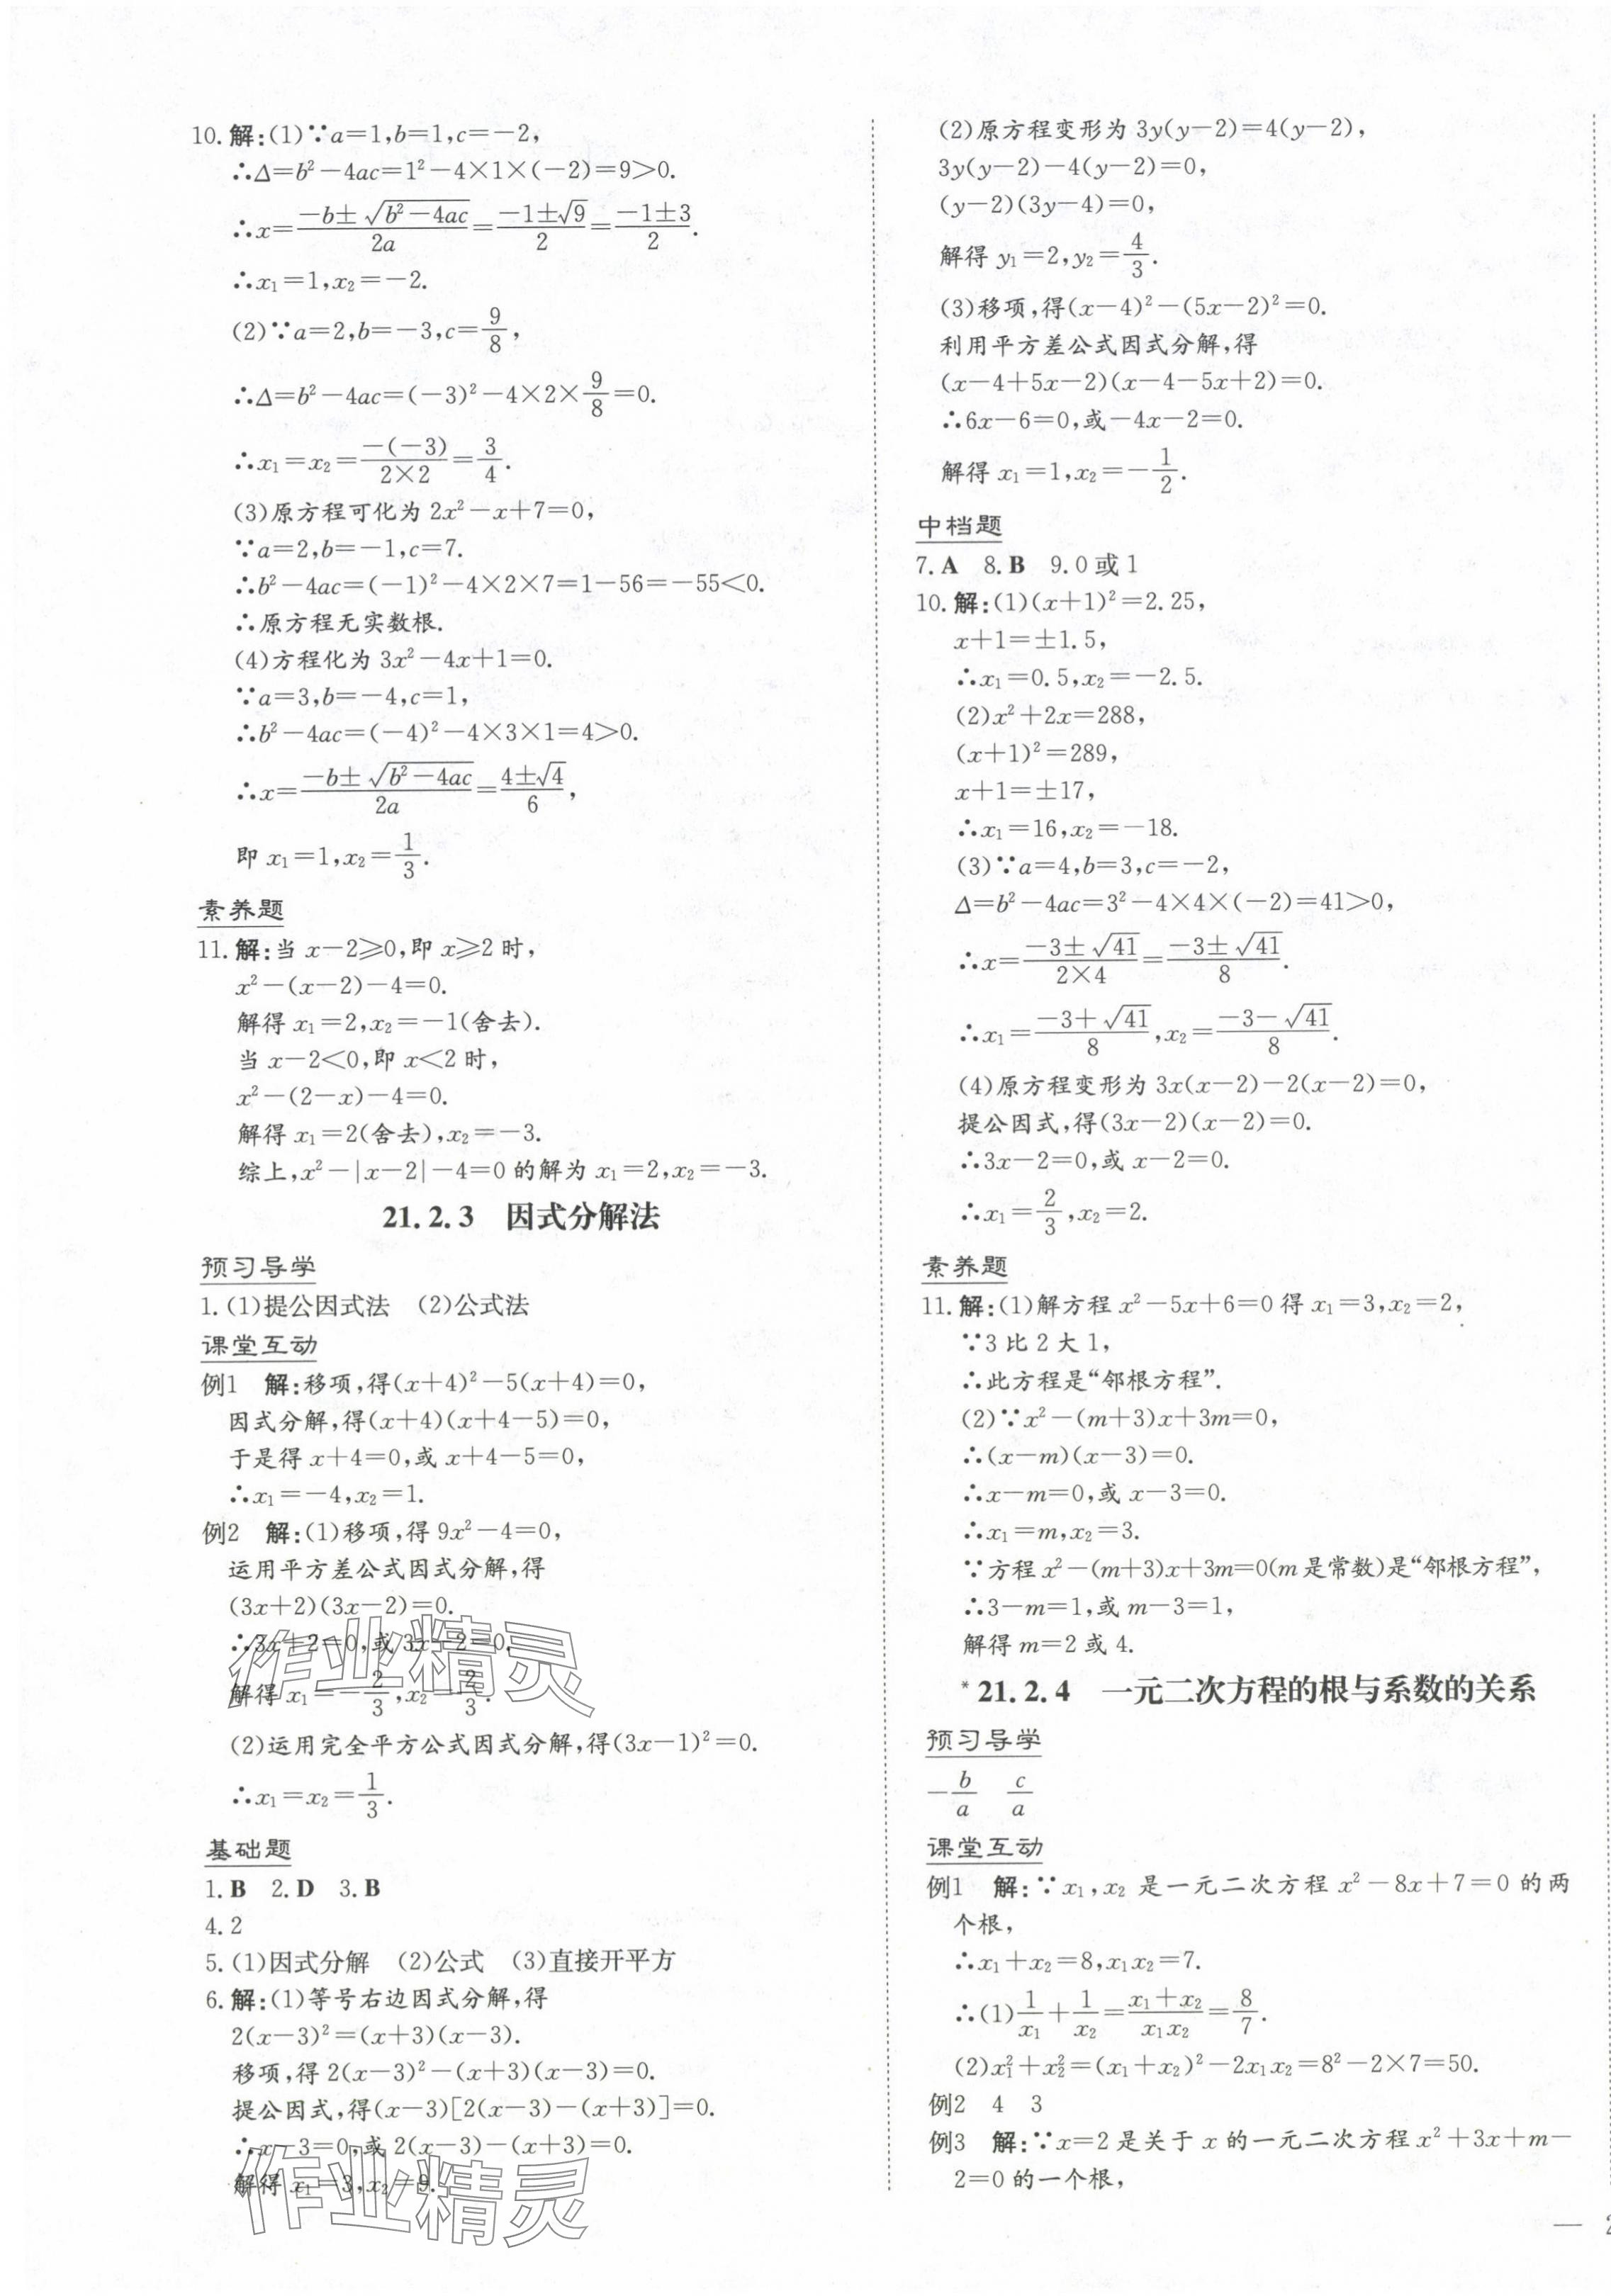 10. 解:(1)∵a=1,b=1,c=-2,
∴Δ=b²-4ac=1²-4×1×(-2)=9>0.
∴x=\frac{-b±\sqrt{b²-4ac}}{2a}=\frac{-1±\sqrt{9}}{2}=\frac{-1±3}{2}.
∴x₁=1,x₂=-2.
(2)∵a=2,b=-3,c=\frac{9}{8},
∴Δ=b²-4ac=(-3)²-4×2×\frac{9}{8}=0.
∴x₁=x₂=\frac{-(-3)}{2×2}=\frac{3}{4}.
(3)原方程可化为 2x²-x+7=0,
∵a=2,b=-1,c=7.
∴b²-4ac=(-1)²-4×2×7=1-56=-55<0.
∴原方程无实数根.
(4)方程化为 3x²-4x+1=0.
∵a=3,b=-4,c=1,
∴b²-4ac=(-4)²-4×3×1=4>0.
∴x=\frac{-b±\sqrt{b²-4ac}}{2a}=\frac{4±\sqrt{4}}{6},
即 x₁=1,x₂=\frac{1}{3}.
素养题
11. 解:当 x-2≥0,即 x≥2 时,
x²-(x-2)-4=0.
解得 x₁=2,x₂=-1(舍去).
当 x-2<0,即 x<2 时,
x²-(2-x)-4=0.
解得 x₁=2(舍去),x₂=-3.
综上,x²-|x-2|-4=0 的解为 x₁=2,x₂=-3.
21.2.3 因式分解法
预习导学
1. (1)提公因式法 (2)公式法
课堂互动
例1 解:移项,得(x+4)²-5(x+4)=0,
因式分解,得(x+4)(x+4-5)=0,
于是得 x+4=0,或 x+4-5=0,
∴x₁=-4,x₂=1.
例2 解:(1)移项,得 9x²-4=0,
运用平方差公式因式分解,得
(3x+2)(3x-2)=0.
∴3x+2=0,或 3x-2=0,
解得 x₁=-\frac{2}{3},x₂=\frac{2}{3}.
作业精灵
(2)运用完全平方公式因式分解,得(3x-1)²=0.
∴x₁=x₂=\frac{1}{3}.
基础题
1. B 2. D 3. B
4. 2
5. (1)因式分解 (2)公式 (3)直接开平方
6. 解:(1)等号右边因式分解,得
2(x-3)²=(x+3)(x-3).
移项,得 2(x-3)²-(x+3)(x-3)=0.
提公因式,得(x-3)[2(x-3)-(x+3)]=0.
∴x-3=0,或 2(x-3)-(x+3)=0.
解得 x₁=3,x₂=9.
作业精灵
(2)原方程变形为 3y(y-2)=4(y-2),
3y(y-2)-4(y-2)=0,
(y-2)(3y-4)=0,
解得 y₁=2,y₂=\frac{4}{3}.
(3)移项,得(x-4)²-(5x-2)²=0.
利用平方差公式因式分解,得
(x-4+5x-2)(x-4-5x+2)=0.
∴6x-6=0,或-4x-2=0.
解得 x₁=1,x₂=-\frac{1}{2}.
中档题
7. A 8. B 9. 0 或 1
10. 解:(1)(x+1)²=2.25,
x+1=±1.5,
∴x₁=0.5,x₂=-2.5.
(2)x²+2x=288,
(x+1)²=289,
x+1=±17,
∴x₁=16,x₂=-18.
(3)∵a=4,b=3,c=-2,
Δ=b²-4ac=3²-4×4×(-2)=41>0,
∴x=\frac{-3±\sqrt{41}}{2×4}=\frac{-3±\sqrt{41}}{8}.
∴x₁=\frac{-3+\sqrt{41}}{8},x₂=\frac{-3-\sqrt{41}}{8}.
(4)原方程变形为 3x(x-2)-2(x-2)=0,
提公因式,得(3x-2)(x-2)=0.
∴3x-2=0,或 x-2=0.
∴x₁=\frac{2}{3},x₂=2.
素养题
11. 解:(1)解方程 x²-5x+6=0 得 x₁=3,x₂=2,
∵3 比 2 大 1,
∴此方程是“邻根方程”.
(2)∵x²-(m+3)x+3m=0,
∴(x-m)(x-3)=0.
∴x-m=0,或 x-3=0.
∴x₁=m,x₂=3.
∵方程 x²-(m+3)x+3m=0(m 是常数)是“邻根方程”,
∴3-m=1,或 m-3=1,
解得 m=2 或 4.
*21.2.4 一元二次方程的根与系数的关系
预习导学
-\frac{b}{a} \frac{c}{a}
课堂互动
例1 解:∵x₁,x₂ 是一元二次方程 x²-8x+7=0 的两
个根,
∴x₁+x₂=8,x₁x₂=7.
∴(1)\frac{1}{x₁}+\frac{1}{x₂}=\frac{x₁+x₂}{x₁x₂}=\frac{8}{7}.
(2)x₁²+x₂²=(x₁+x₂)²-2x₁x₂=8²-2×7=50.
例2 4 3
例3 解:∵x=2 是关于 x 的一元二次方程 x²+3x+m-
2=0 的一个根,
— 2